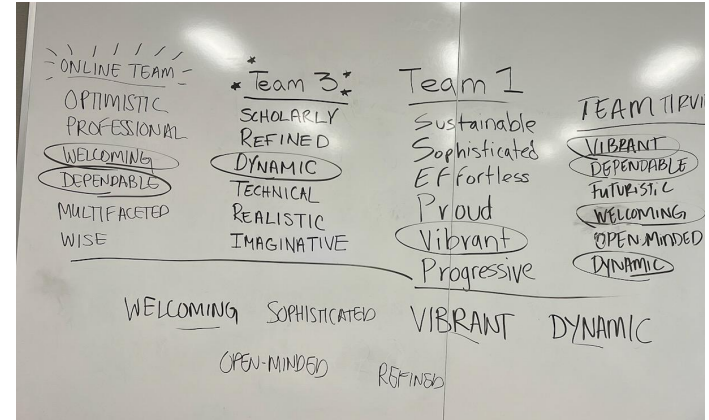 ONLINE TEAM
OPTIMISTIC
PROFESSIONAL
WELCOMING
DEPENDABLE
MULTIFACETED
WISE
Team 3
SCHOLARLY
REFINED
DYNAMIC
TECHNICAL
REALISTIC
IMAGINATIVE
Team 1
Sustainable
Sophisticated
Effortless
Proud
Vibrant
Progressive
TEAM
VIBRANT
DEPENDABLE
FUTURISTIC
WELCOMING
OPEN MINDED
DYNAMIC
WELCOMING SOPHISTICATED VIBRANT DYNAMIC
OPEN-MINDED REFINED